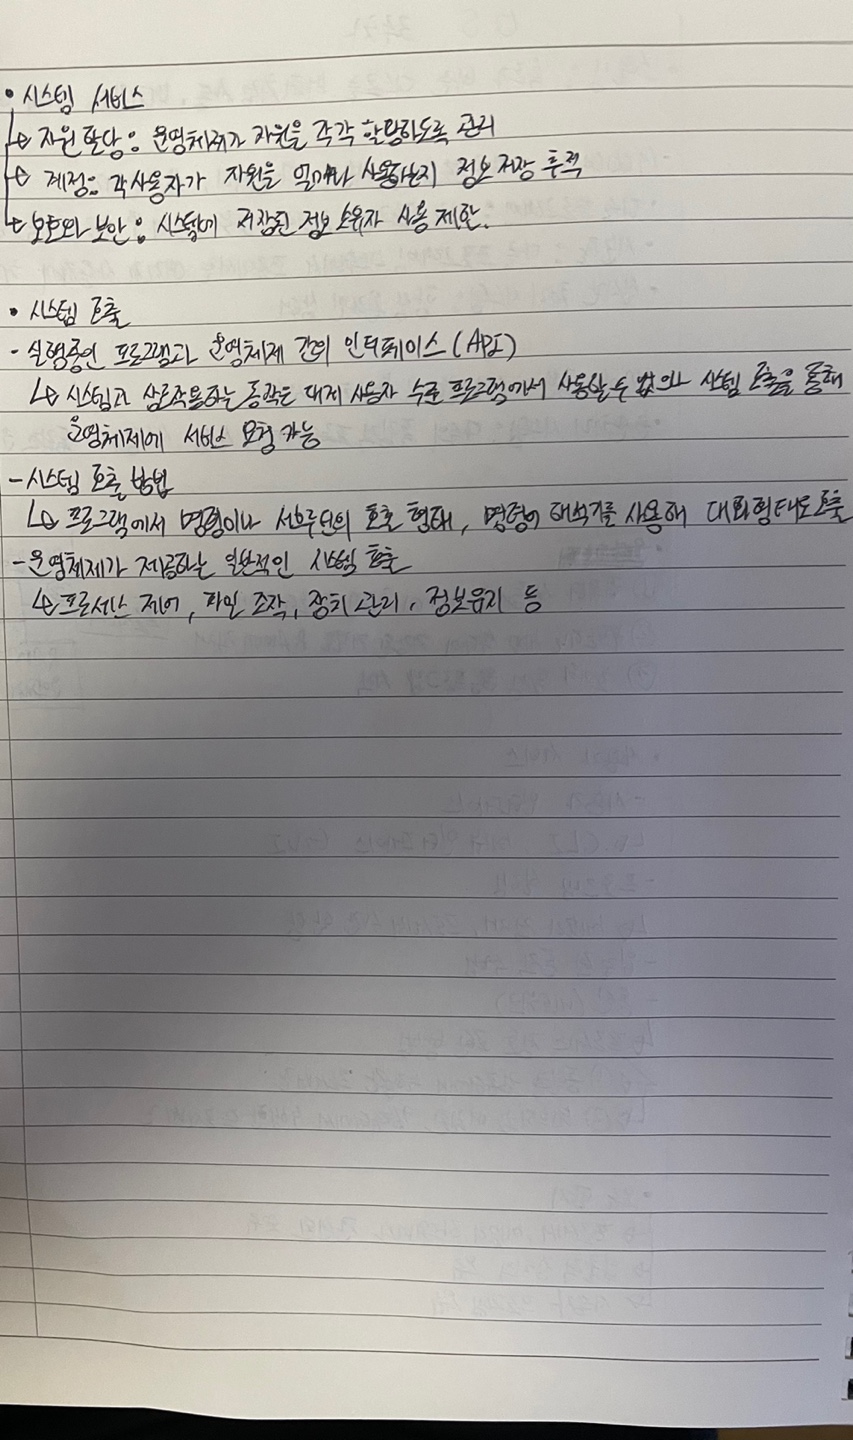 • 시스템 서비스
↳ 자원 할당 : 운영체제가 자원을 각각 할당하도록 관리
↳ 계정 : 각 사용자가 자원을 얼마나 사용하는지 정보 저장 추적
↳ 보호와 보안 : 시스템에 저장된 정보 소유자 사용 제한.
• 시스템 호출
- 실행중인 프로그램과 운영체제 간의 인터페이스 (API)
↳ 시스템과 상호작용하는 동작은 대게 사용자 수준 프로그램에서 사용할 수 없으나 시스템 호출을 통해
운영체제에 서비스 요청 가능
- 시스템 호출 방법
↳ 프로그램에서 명령이나 서브루틴의 호출 형태, 명령어 해석기를 사용해 대화형태로 호출
- 운영체제가 제공하는 일반적인 시스템 호출
↳ 프로세스 제어, 파일 조작, 장치 관리, 정보유지 등